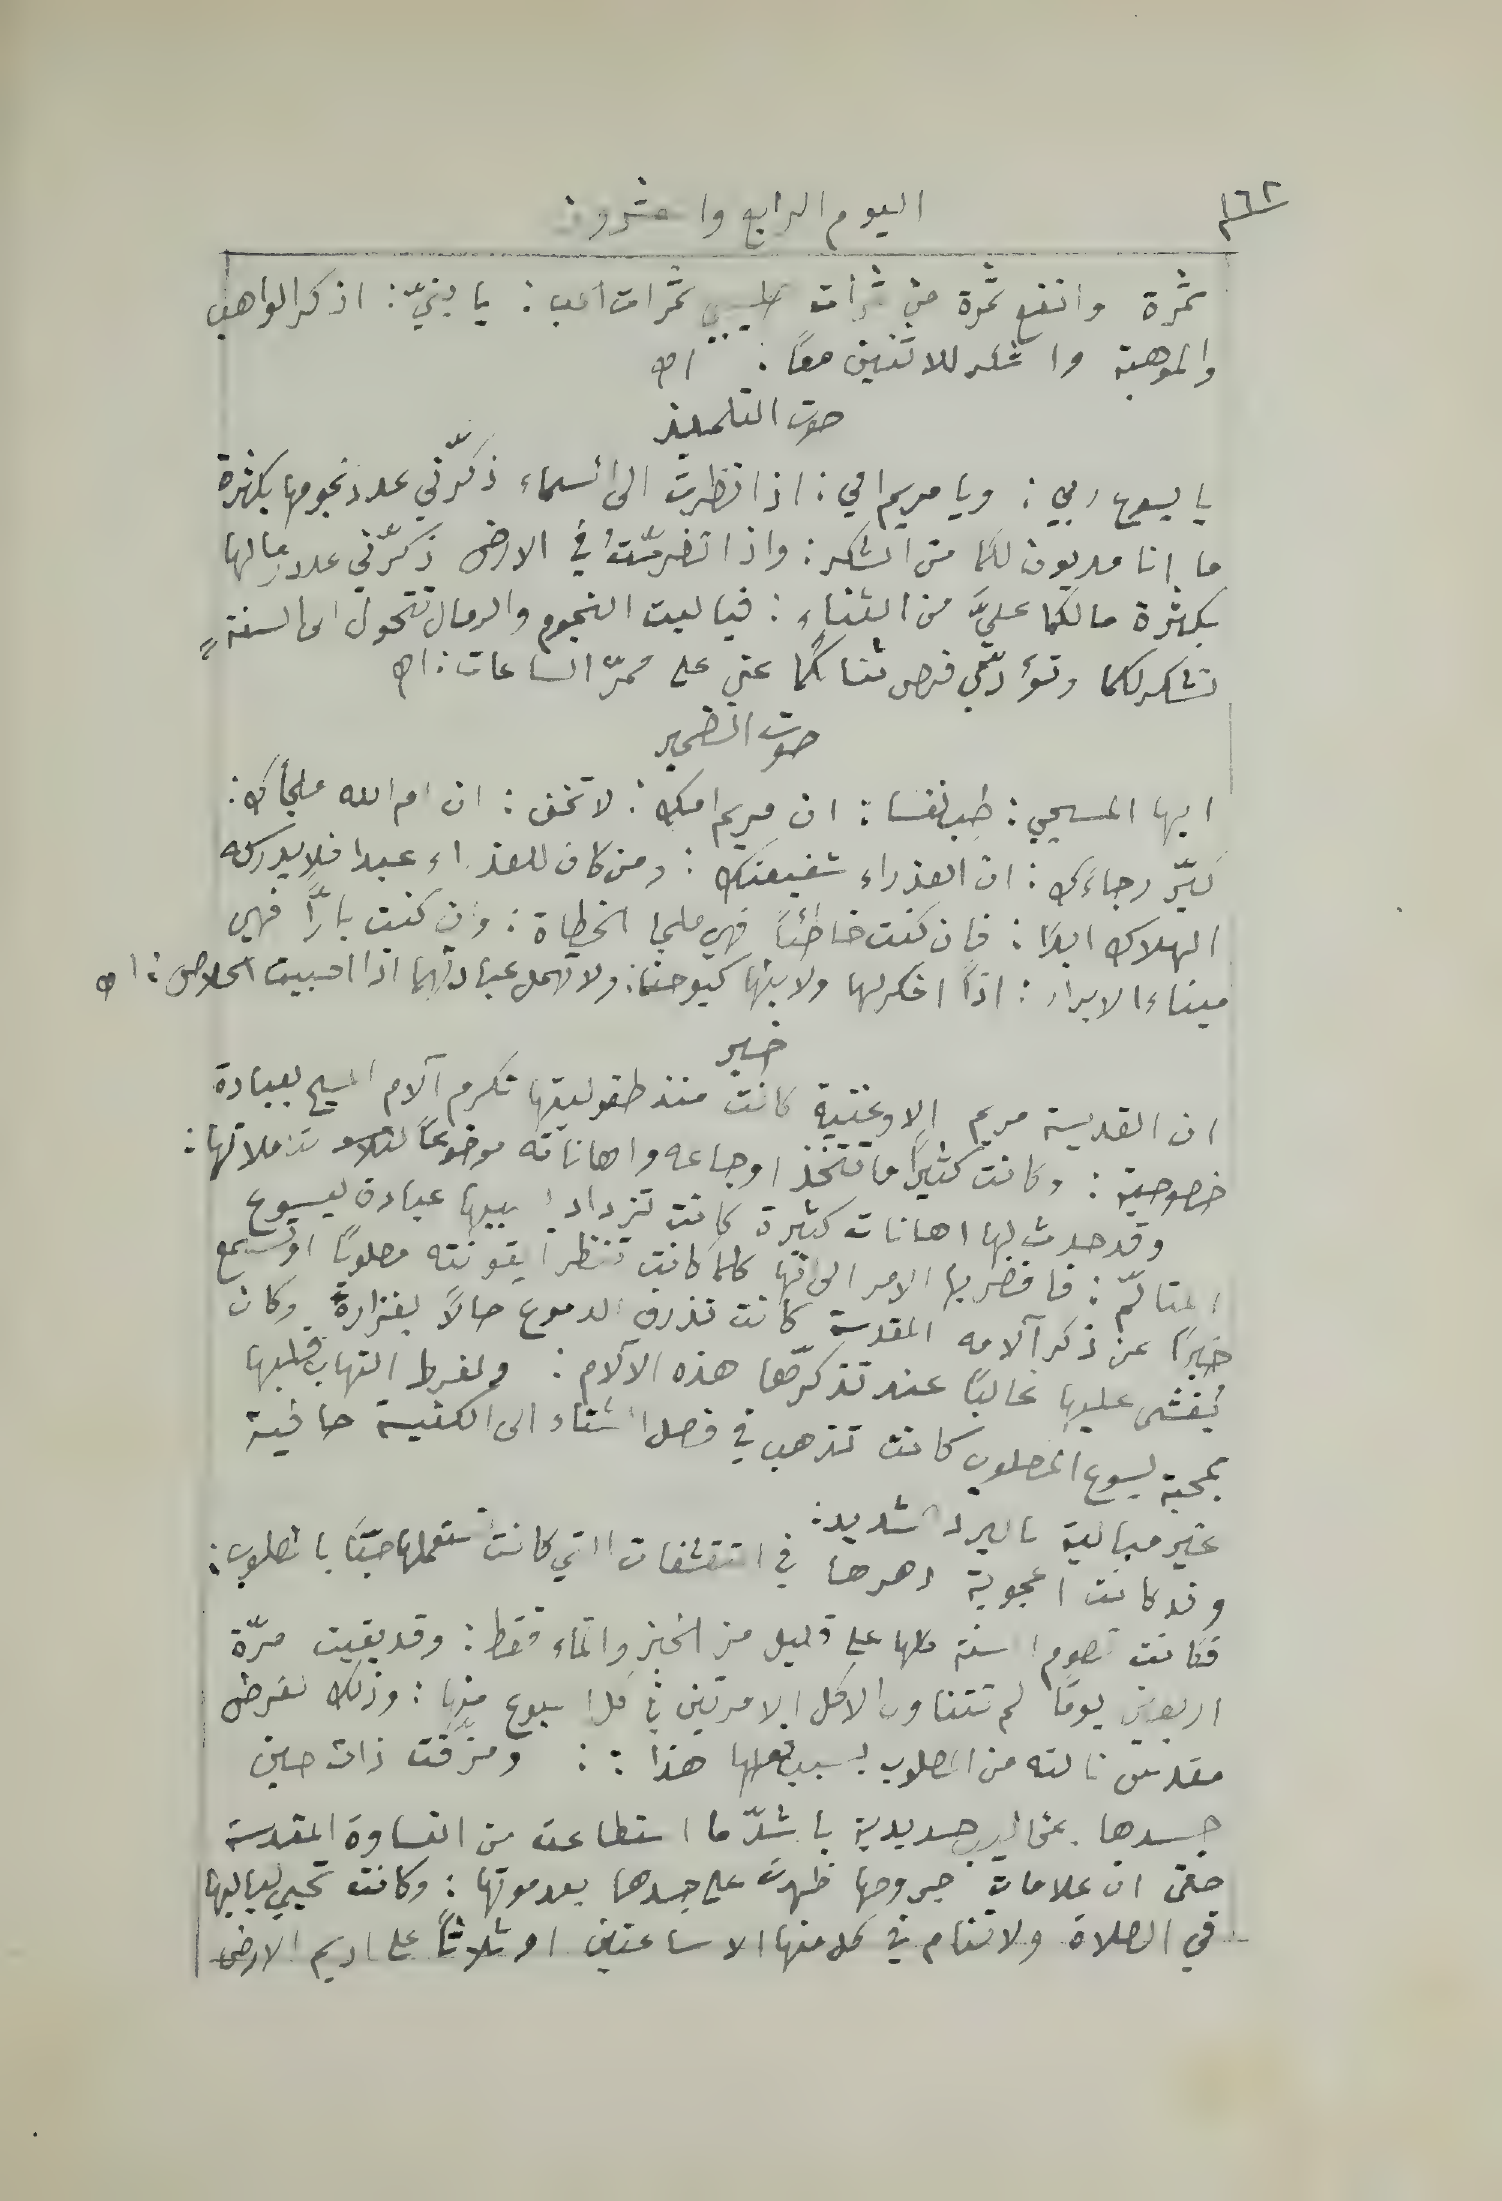 ١٦٢
اليوم الرابع والعشرون
ثمرة وانفع ثمرة من ثمرات صليبي ثمرات الحب : يا بنيّ : اذكر الواهب
والموهبة واشكر للاثنين معًا : اه
صوت التلميذ
يا يسوع ربي : ويا مريم امي : اذا نظرت الى السماء ذكّرني عدد نجومها بكثرة
ما انا مديون لكما من الشكر : واذا تفرسّتُ في الارض ذكّرني عدد رمالها
بكثرة ما لكما عليَّ من الثناء : فيا ليت النجوم والرمال تتحول الى السنة
تشكر لكما وتؤدّي فرض ثناكما عني على ممرّ الساعات : اه
صوت الضمير
ايها المسيحي : طِب نفسا : ان مريم امك : لا تخف : ان ام الله ملجأك :
كبّر رجاءك : ان العذراء شفيعتك : ومن كان للعذراء عبدا فلا يدركه
الهلاك ابدًا : فان كنت خاطئًا فهي ملجا الخطاة : وان كنت بارًّا فهي
ميناء الابرار : اذًا اشكر لها ولابنها كيوحنا : ولا تهمل عبادتهما اذا احببت الخلاص : اه
خبر
ان القديسة مريم الاوغنية كانت منذ طفوليتها تكرم آلام المسيح بعبادة
خصوصية : وكانت كثيرًا ما تتخذ اوجاعه واهاناته موضوعًا لتأملاتها :
وقد حدث لها اهانات كثيرة كانت تزداد بسببها عبادة ليسوع
المتألّم : فافضى بها الامر الى انها كلما كانت تنظر ايقونته مصلوبًا او تسمع
خبرًا عن ذكر آلامه المقدسة كانت تذرف الدموع حالاً بغزارة وكان
يُغشى عليها غالبًا عند تذكرّها هذه الآلام : ولفرط التهاب قلبها
بمحبة يسوع المصلوب كانت تذهب في فصل الشتاء الى الكنيسة حافية
غير مبالية بالبرد الشديد :
وقد كانت اعجوبة دهرها في التقشفات التي كانت تستعملها حبًّا بالمصلوب :
فكانت تصوم السنة كلها على قليل من الخبز والماء فقط : وقد بقيت مرّة
اربعين يومًا لم تتناول الاكل الا مرتين في كل اسبوع منها : وذلك لغرض
مقدس نالته من المصلوب بسبب فعلها هذا : : ومزّقت ذات حين
جسدها بمخاليب حديدية باشدّ ما استطاعت من القساوة المقدسة
حتى ان علامات جروحها ظهرت على جسدها بعد موتها : وكانت تحيي لياليها
في الصلاة ولا تنام في كل منها الا ساعتين او ثلاثًا على اديم الارض